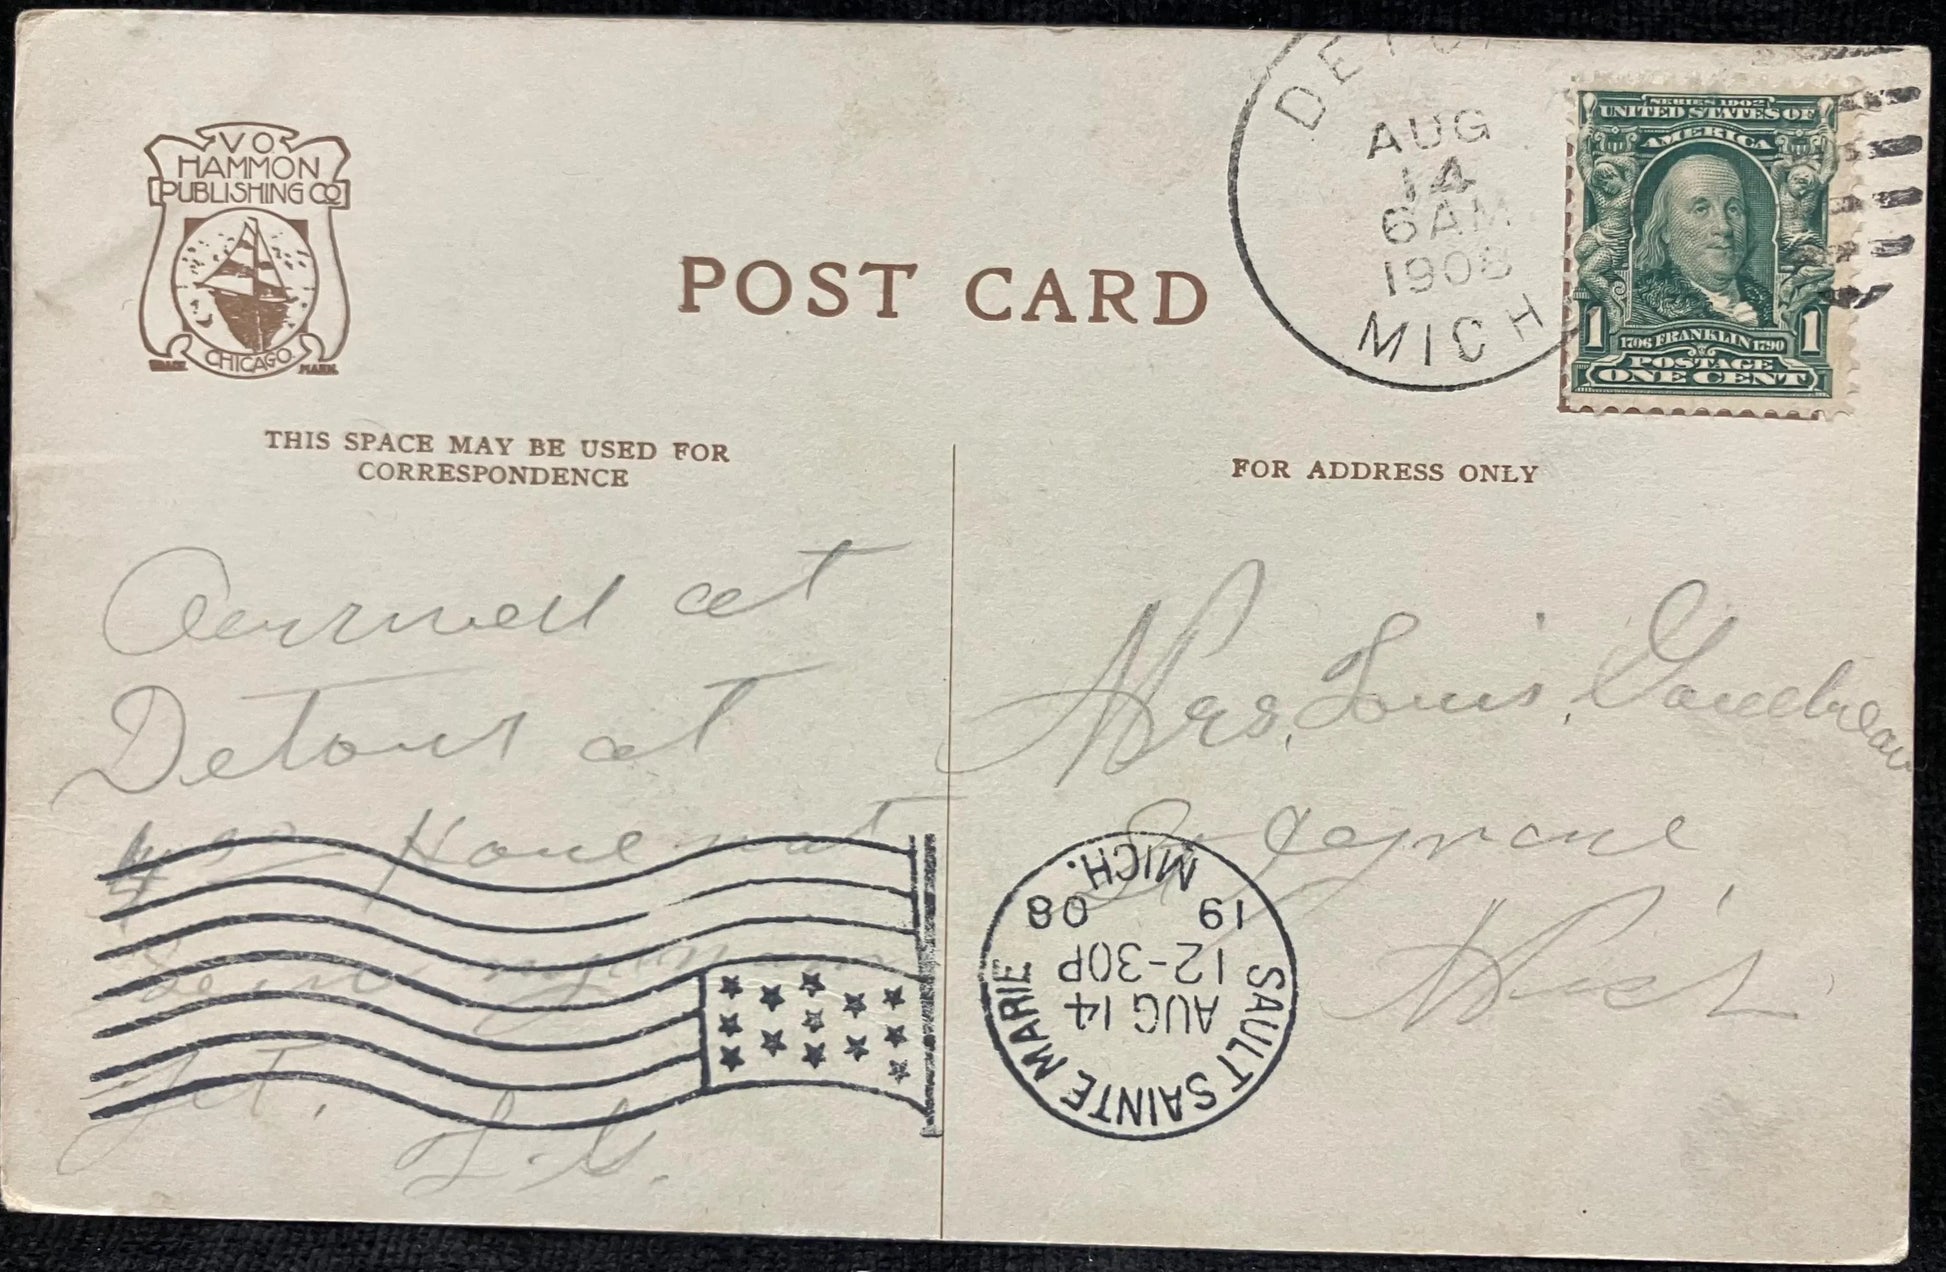 VO
HAMMON
PUBLISHING CO
CHICAGO
TRADE MARK.
POST CARD
AUG
14
6 AM
1908
MICH
SERIES 1902
UNITED STATES OF
AMERICA
1 1706 FRANKLIN 1790 1
POSTAGE
ONE CENT
THIS SPACE MAY BE USED FOR
CORRESPONDENCE
at
Detour at
Have not
yet.
L. G.
FOR ADDRESS ONLY
Mrs. Louis Goudreau
St Ignace
Mich
SAULT SAINTE MARIE
AUG 14
12-30P
19 08
MICH.